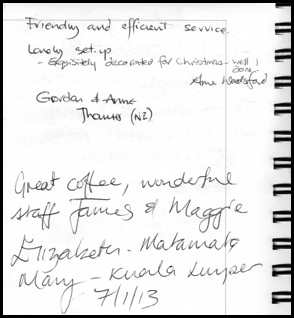 Friendly and efficient service.
Lovely set-up
- Exquisitely decorated for Christmas - well
done.
Anne
Gordon & Anne
Thanks (NZ)
Great coffee, wonderful
staff James & Maggie
Elizabeth - Matamata
Mary - Kuala Lumper
7/1/13